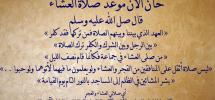 حان الآن موعد صلاة العشاء
قال صل الله عليه وسلم
«العهد الذي بيننا وبينهم الصلاة فمن تركها فقد كفر»
«بين الرجل وبين الشرك والكفر ترك الصلاة»
«من صلى العشاء في جماعة فكأنما قام نصف الليل»
«ليس صلاة أثقل على المنافقين من الفجر والعشاء ولو يعلمون ما فيهما لأتوهما ولو حبوا ..»
«بشر المشائين في الظلم إلى المساجد بالنور التام يوم القيامة»